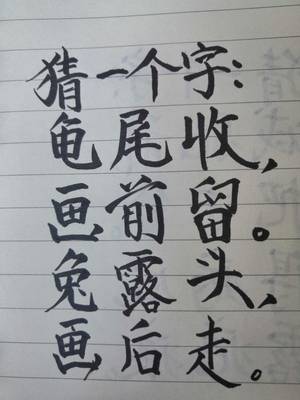 猜一个字：
龟尾收，
画前留。
兔露头，
画后走。